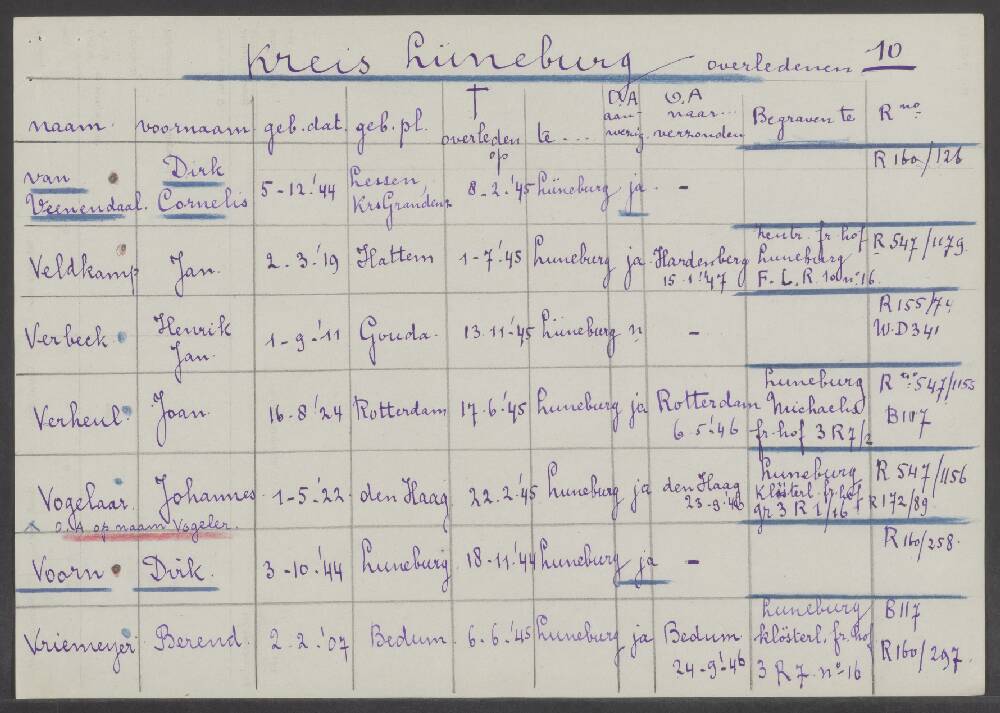 Kreis Lüneburg overledenen 10
naam. voornaam. geb. dat. geb. pl. † overleden op te.... O.A aanwezig. O.A naar... verzonden Begraven te R no
van Veenendaal. Dirk Cornelis 5-12.'44 Lessen Krs Graudenz 8-2.'45 Lüneburg ja. - R 160/126
Veldkamp Jan. 2.3.'19 Hattem 1-7.'45 Luneburg ja. Hardenberg 15.1.'47 Zentr. fr. hof Luneburg F. L. R. 10 no. 16. R 547/1179.
Verbeck. Henrik Jan. 1-9-'11 Gouda. 13.11.'45 Lüneburg n - R 155/74 W.D 341
Verheul. Joan. 16-8'24 Rotterdam 17.6.'45 Luneburg ja Rotterdam 6.5.'46 Luneburg Michaelis fr. hof 3 R 7/2 R no. 547/1155 B 117
Vogelaar. Johannes 1-5.'22. den Haag 22.2.'45 Luneburg ja den Haag 23-9.'46 Luneburg klösterl. fr. hof gr 3 R 1/16 R 547/1156 R 172/89.
x O.A op naam Vogeler.
Voorn Dirk. 3-10.'44 Luneburg 18-11.'44 Luneburg ja - R 160/258.
Vriemeyer Berend. 2.2.'07 Bedum. 6.6.'45 Luneburg ja Bedum 24-9.'46 Luneburg klösterl. fr. hof 3 R 7. no 16 B 117 R 160/297.